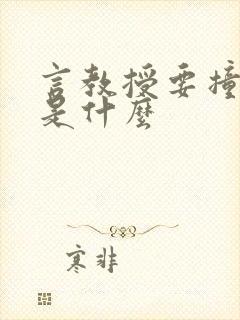 言教授要撞
是什麼
寒非